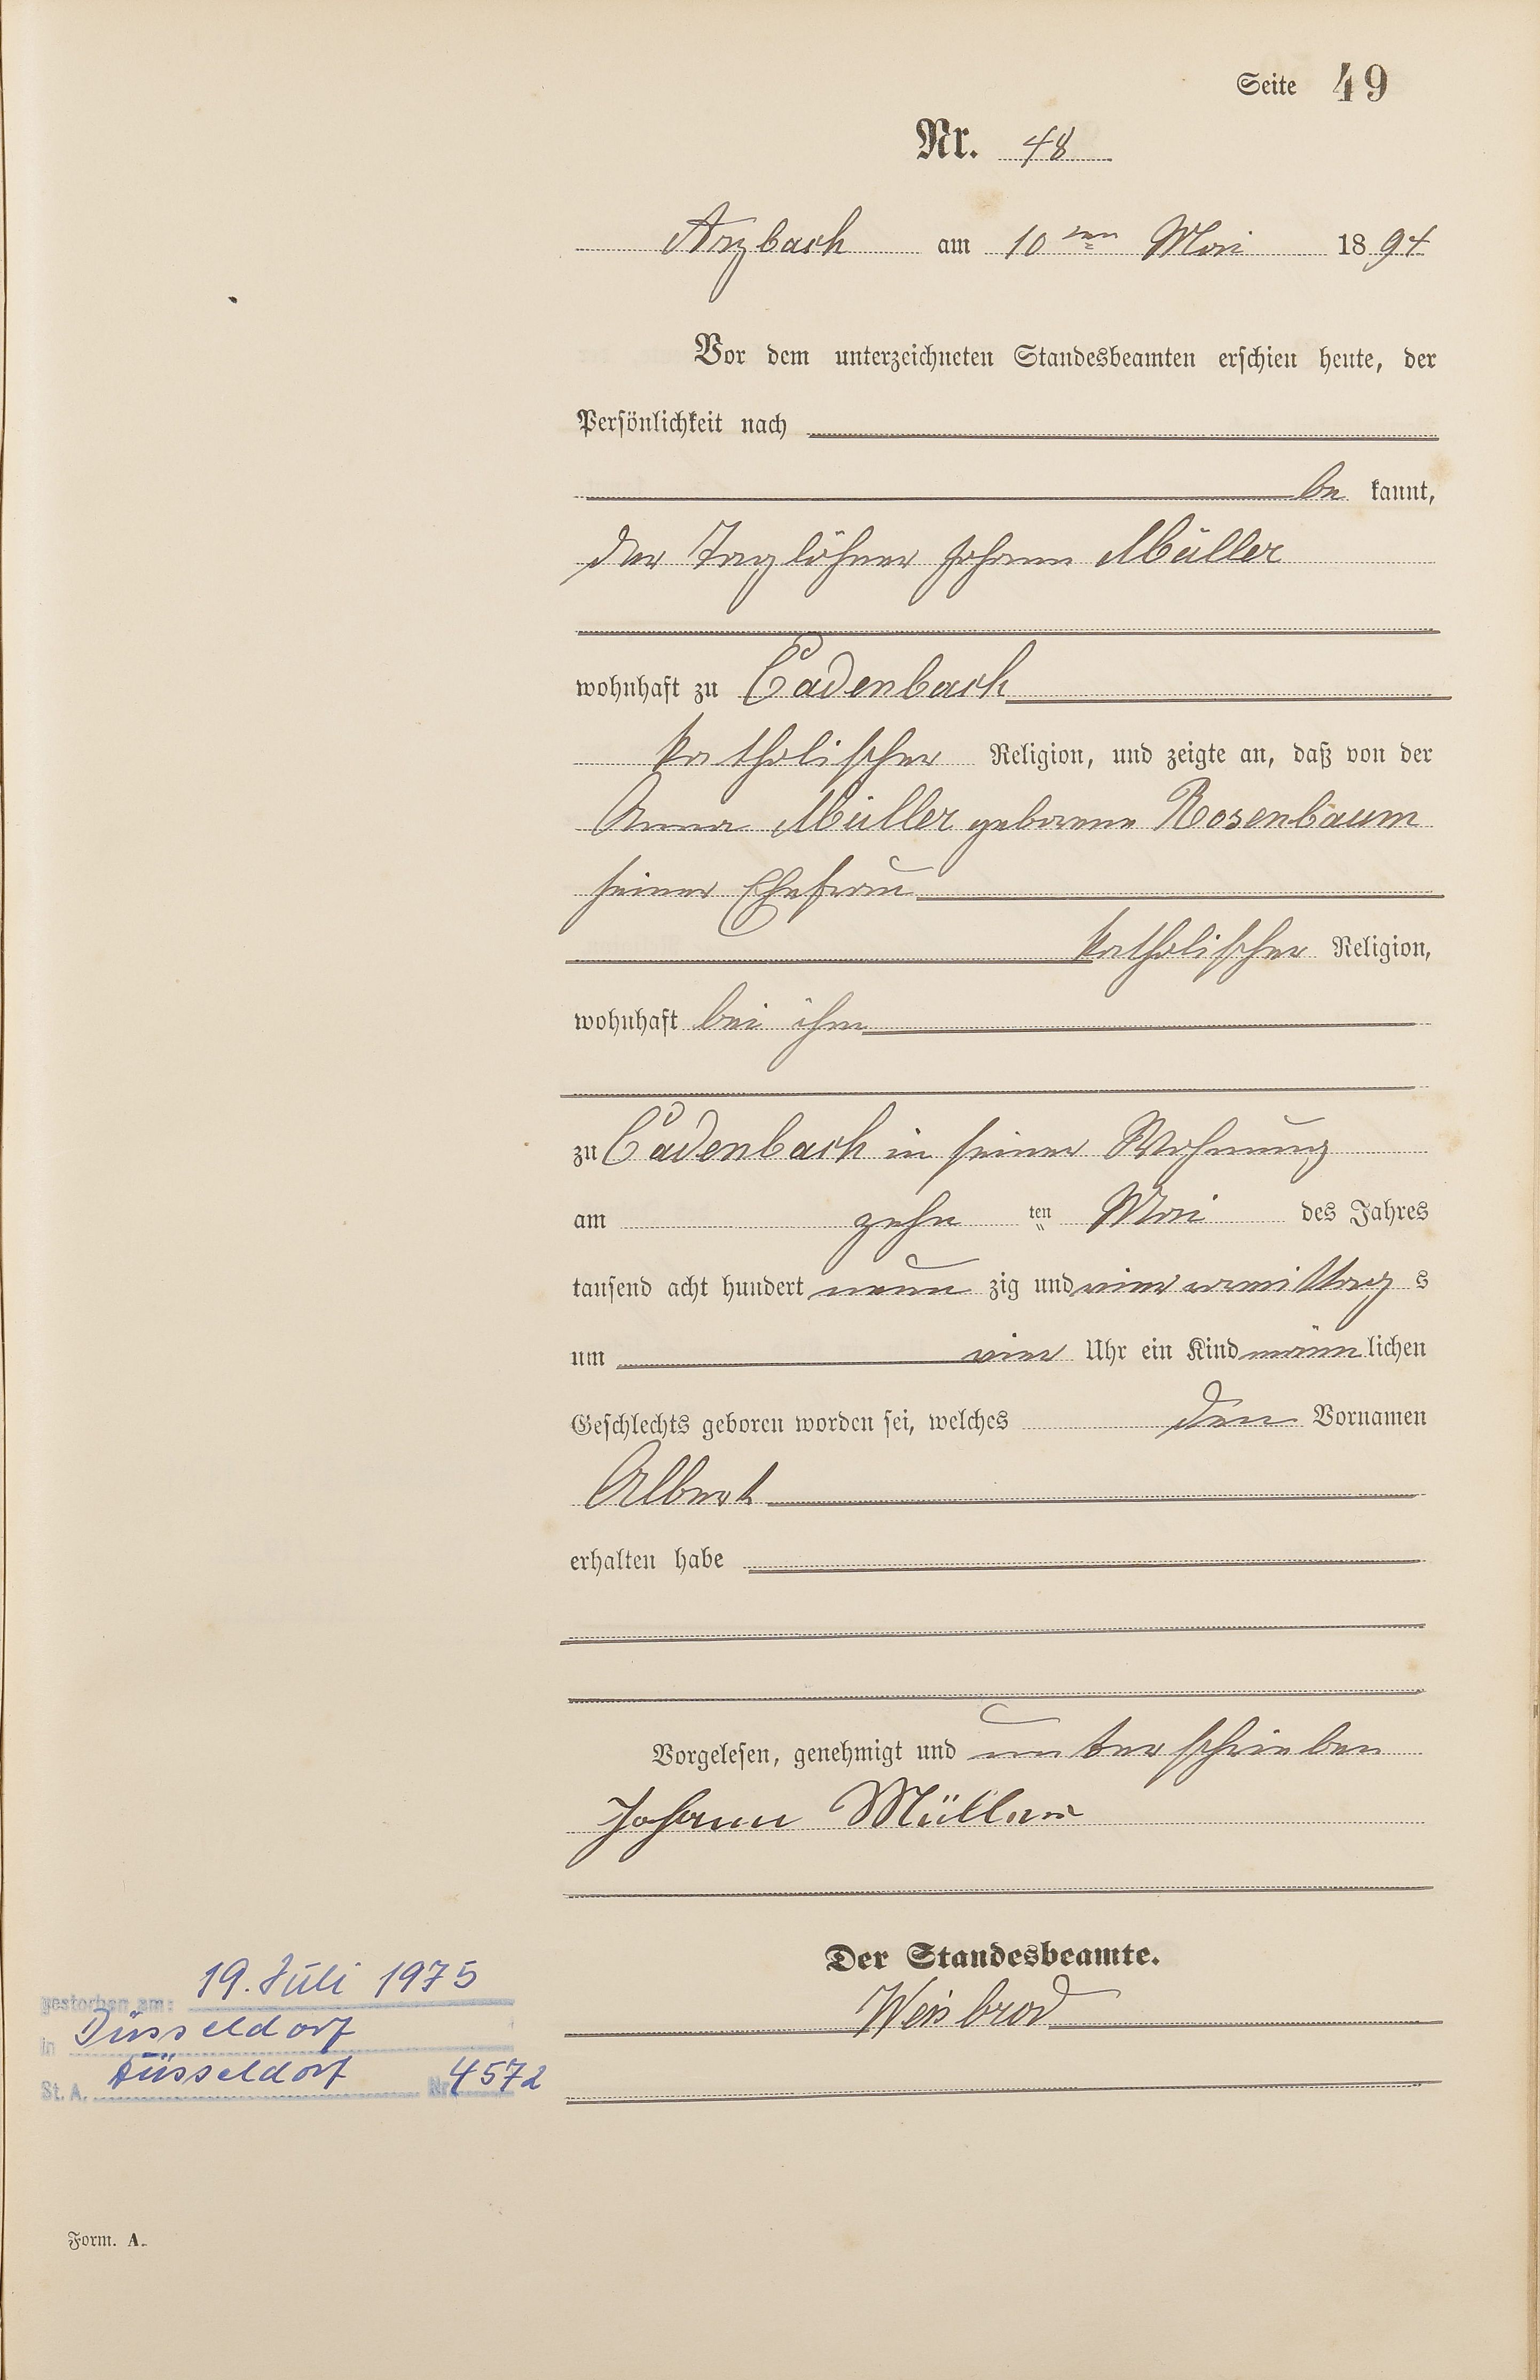 Seite 49
Nr. 48
Arzbach am 10ten Mai 1894
Vor dem unterzeichneten Standesbeamten erschien heute, der
Persönlichkeit nach
be kannt,
der Taglöhner Johann Müller
wohnhaft zu Cadenbach
katholischer Religion, und zeigte an, daß von der
Anna Müller geborene Rosenbaum
seiner Ehefrau
katholischer Religion,
wohnhaft bei ihm
zu Cadenbach in seiner Wohnung
am zehn ten Mai des Jahres
tausend acht hundert neun zig und vier vormittag s
um vier Uhr ein Kind männ lichen
Geschlechts geboren worden sei, welches den Vornamen
Albert
erhalten habe
Vorgelesen, genehmigt und unterschrieben
Johann Müller
Der Standesbeamte.
Weisbrod
gestorben am: 19. Juli 1975
in Düsseldorf
St. A. Düsseldorf Nr. 4572
Form. A.